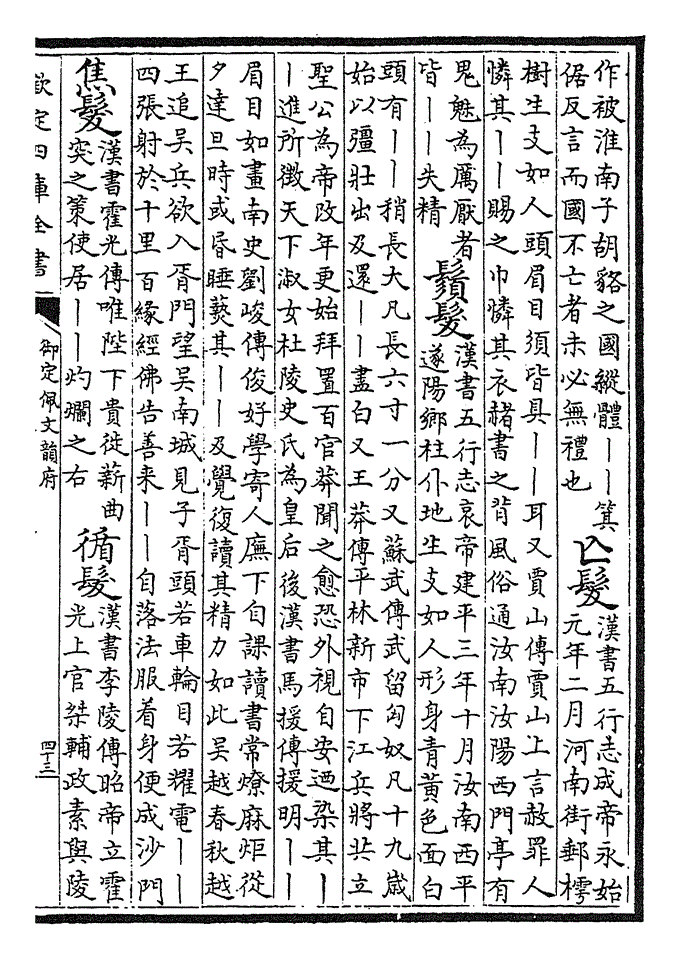 作被淮南子胡貉之國縱體｜｜箕
倨反言而國不亡者未必無禮也
亾髮
漢書五行志成帝永始
元年二月河南街郵樗
樹生支如人頭眉目須皆具｜｜耳又賈山傳賈山上言赦罪人
憐其｜｜賜之巾憐其衣赭書之背風俗通汝南汝陽西門亭有
鬼魅為厲厭者
皆｜｜失精
鬚髮
漢書五行志哀帝建平三年十月汝南西平
遂陽鄉柱仆地生支如人形身青黃色面白
頭有｜｜稍長大凡長六寸一分又蘇武傳武留匈奴凡十九歲
始以彊壯出及還｜｜盡白又王莽傳平林新市下江兵將共立
聖公為帝改年更始拜置百官莽聞之愈恐外視自安迺染其｜
｜進所徵天下淑女杜陵史氏為皇后後漢書馬援傳援明｜｜
眉目如畫南史劉峻傳俊好學寄人廡下自課讀書常燎麻炬從
夕達旦時或昏睡爇其｜｜及覺復讀其精力如此吳越春秋越
王追吳兵欲入胥門望吳南城見子胥頭若車輪目若耀電｜｜
四張射於十里百緣經佛告善来｜｜自落法服着身便成沙門
焦髮
漢書霍光傳唯陛下貴徙薪曲
突之策使居｜｜灼爛之右
循髮
漢書李陵傳昭帝立霍
光上官桀輔政素與陵
欽定四庫全書
御定佩文韻府
四十三